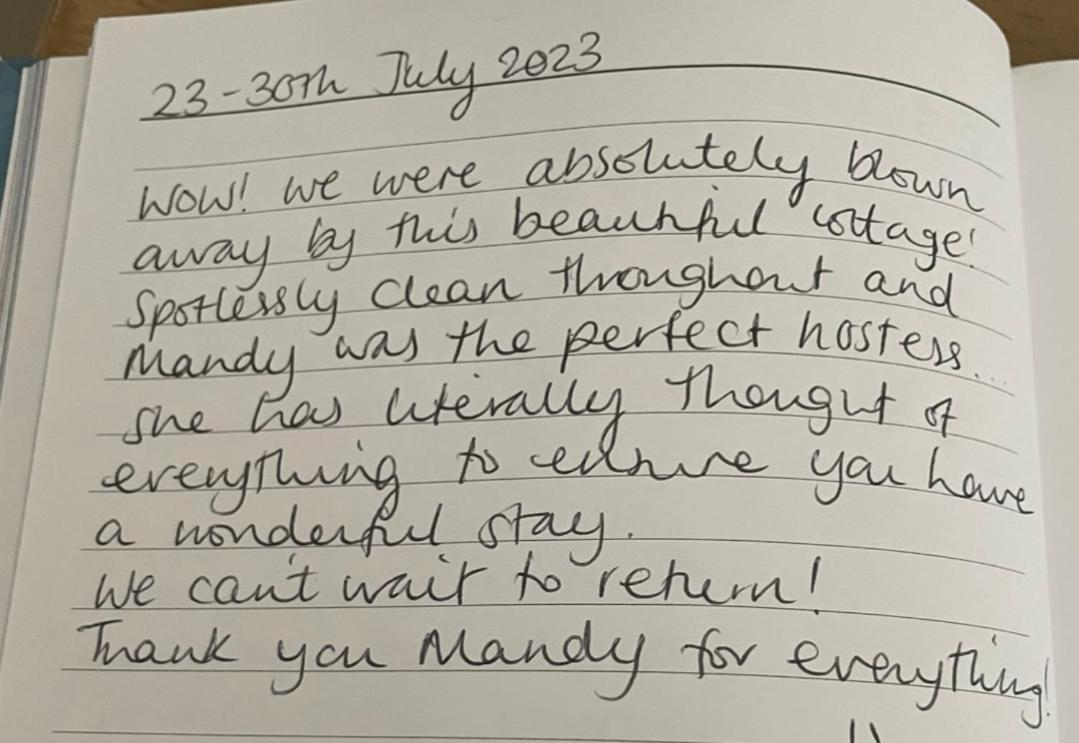 23-30th July 2023
Wow! We were absolutely blown
away by this beautiful cottage!
Spotlessly clean throughout and
Mandy was the perfect hostess...
she has literally thought of
everything to ensure you have
a wonderful stay.
We can't wait to return!
Thank you Mandy for everything!